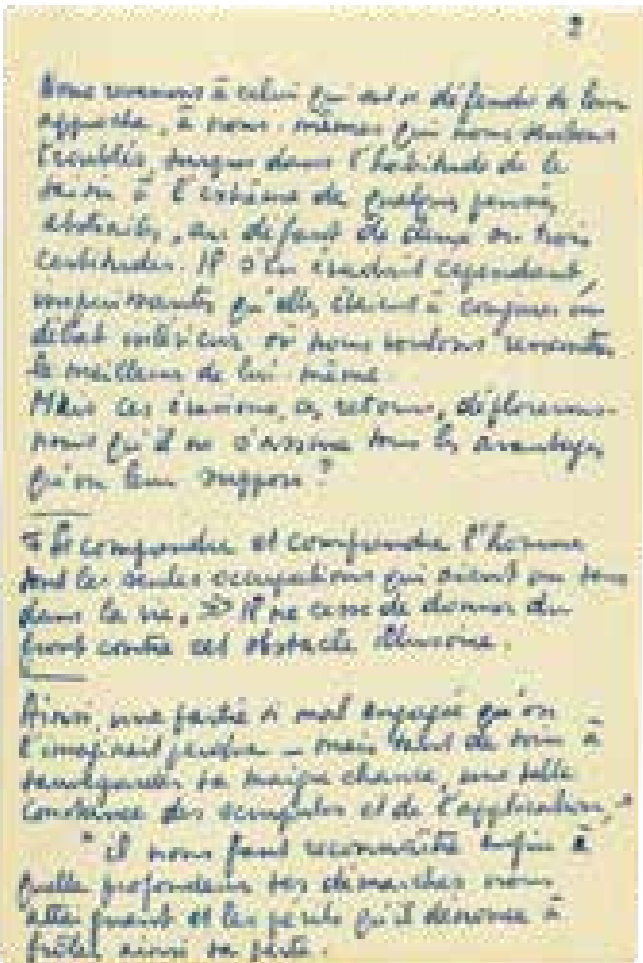 2
Nous revenons à celui qui ose se défendre de leur
approche, à nous-mêmes qui nous sentons
troublés, dans l'habitude de le
saisir à l'extrême de quelques pensées
abstraites, au défaut de deux ou trois
certitudes. Il s'en évadait cependant,
impuissantes qu'elles étaient à conjurer un
débat intérieur où nous voulons rencontrer
le meilleur de lui-même.
Mais ces évasions, ces retours, déplorerons-
nous qu'il ne s'assure tous les avantages
qu'on leur suppose ?
« Se comprendre et comprendre l'homme
sont les seules occupations qui aient un sens
dans la vie. » Il ne cesse de donner du
front contre cet obstacle illusoire.
Ainsi, une partie si mal engagée qu'on
l'imaginait perdue – mais tant de soin à
sauvegarder sa maigre chance, une telle
constance des scrupules et de l'application,
il nous faut reconnaître enfin à
quelle profondeur ses démarches nous
atteignaient et les périls qu'il dénonce à
frôler ainsi sa perte.